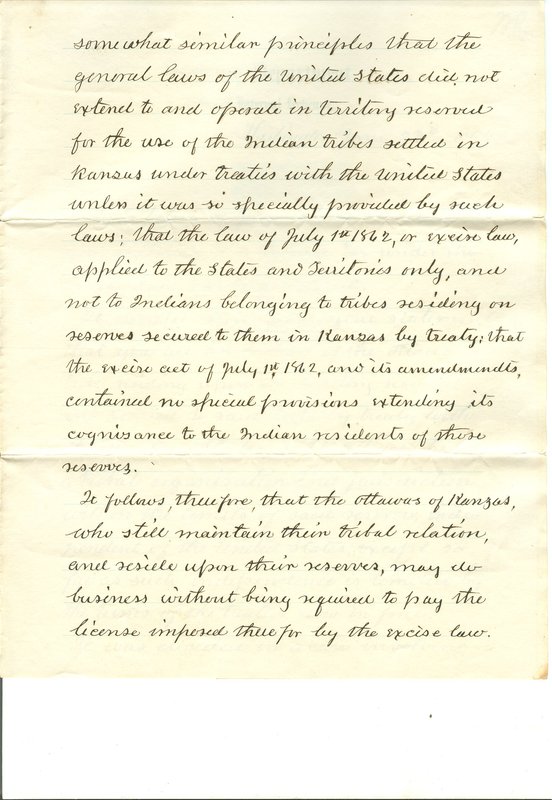 somewhat similar principles that the
general laws of the United States did, not
extend to and operate in territory reserved
for the use of the Indian tribes settled in
Kansas under treaties with the United States
unless it was so specially provided by such
laws; that the law of July 1st 1862, or excise law,
applied to the States and Territories only, and
not to Indians belonging to tribes residing on
reserves secured to them in Kanzas by treaty; that
the excise act of July 1st, 1862, and its amendmendts,
contained no special provisions extending its
cognisance to the Indian residents of those
reserves.
It follows, therefore, that the Ottawas of Kanzas,
who still maintain their tribal relation,
and reside upon their reserves, may do
business without being required to pay the
license imposed therefor by the excise law.